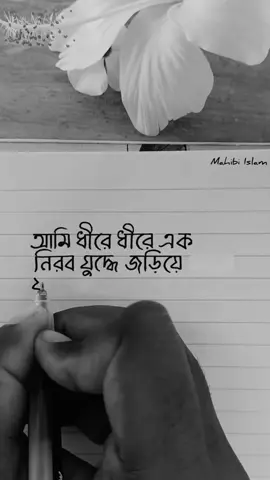 Mahibi Islam
আমি ধীরে ধীরে এক
নিরব যুদ্ধে জড়িয়ে